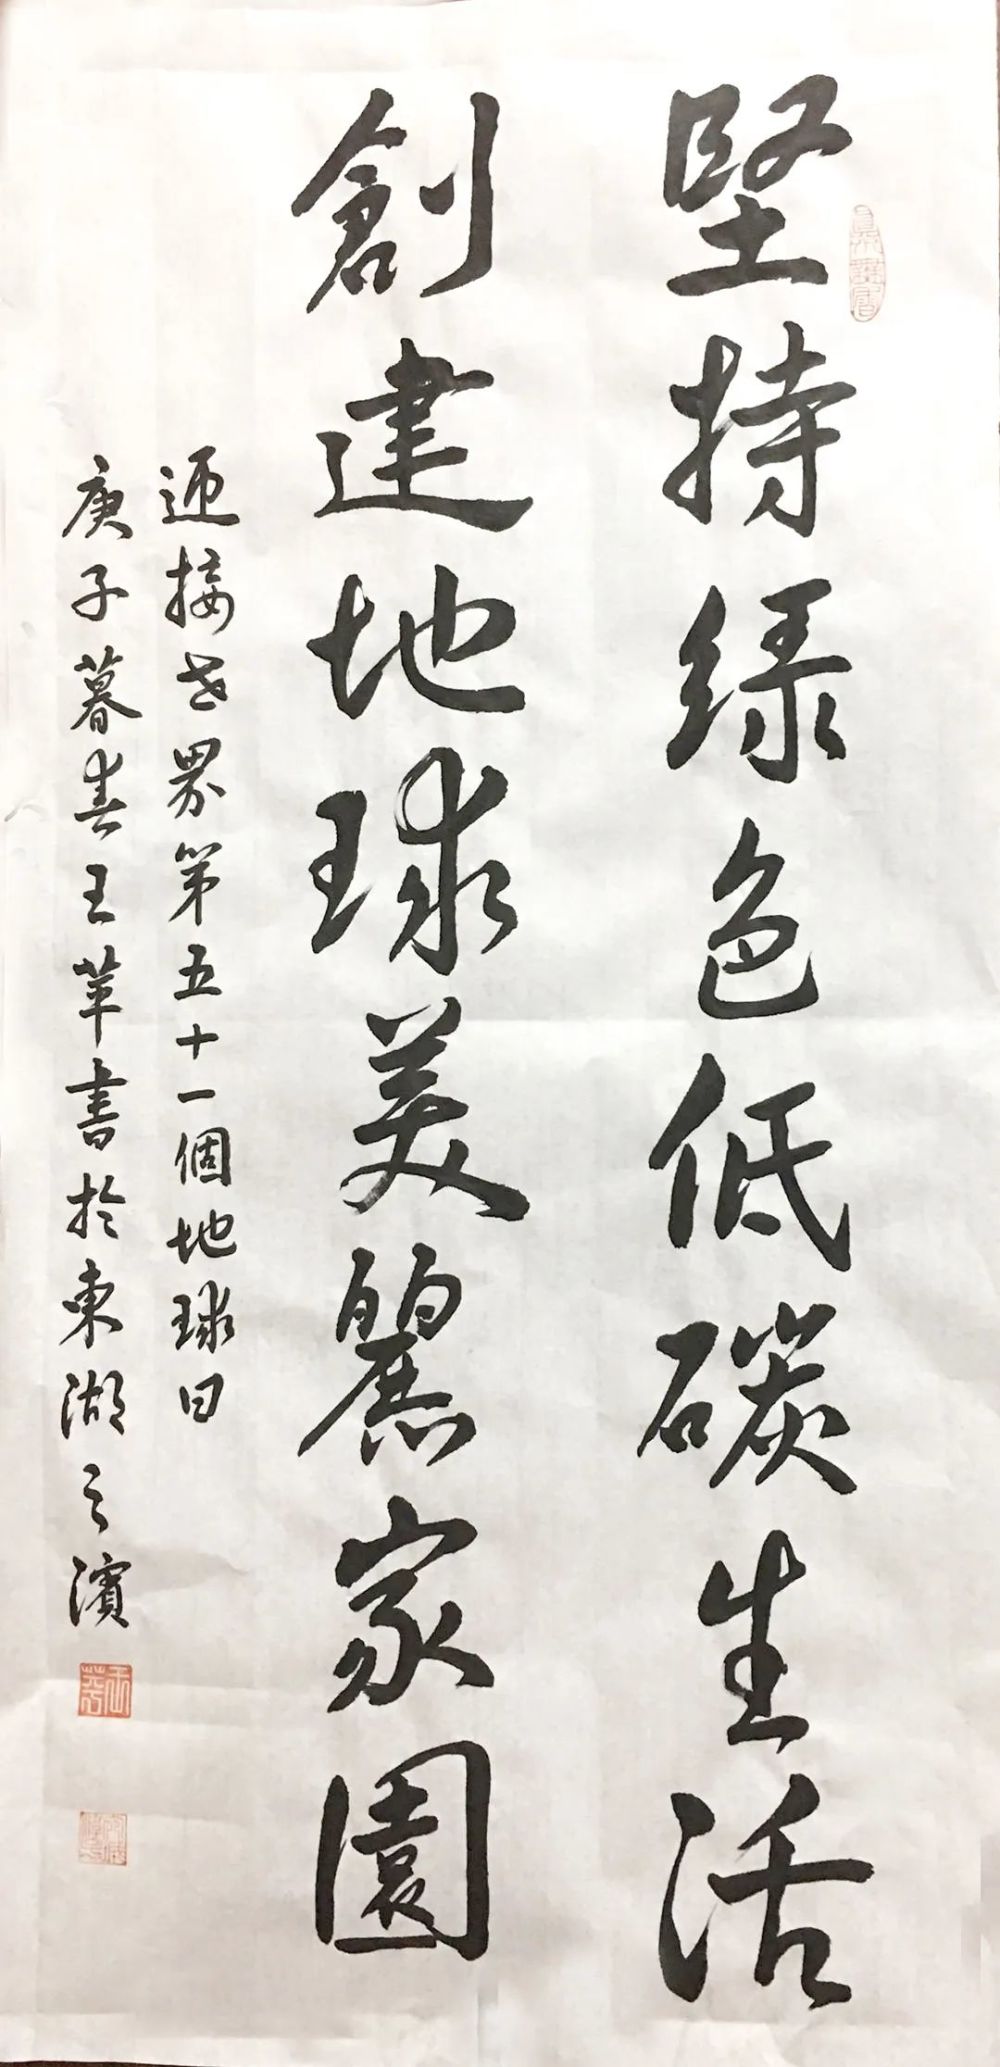 堅持绿色低碳生活
創建地球美麗家園
迎接世界第五十一個地球日
庚子暮春王苹書於東湖之濱